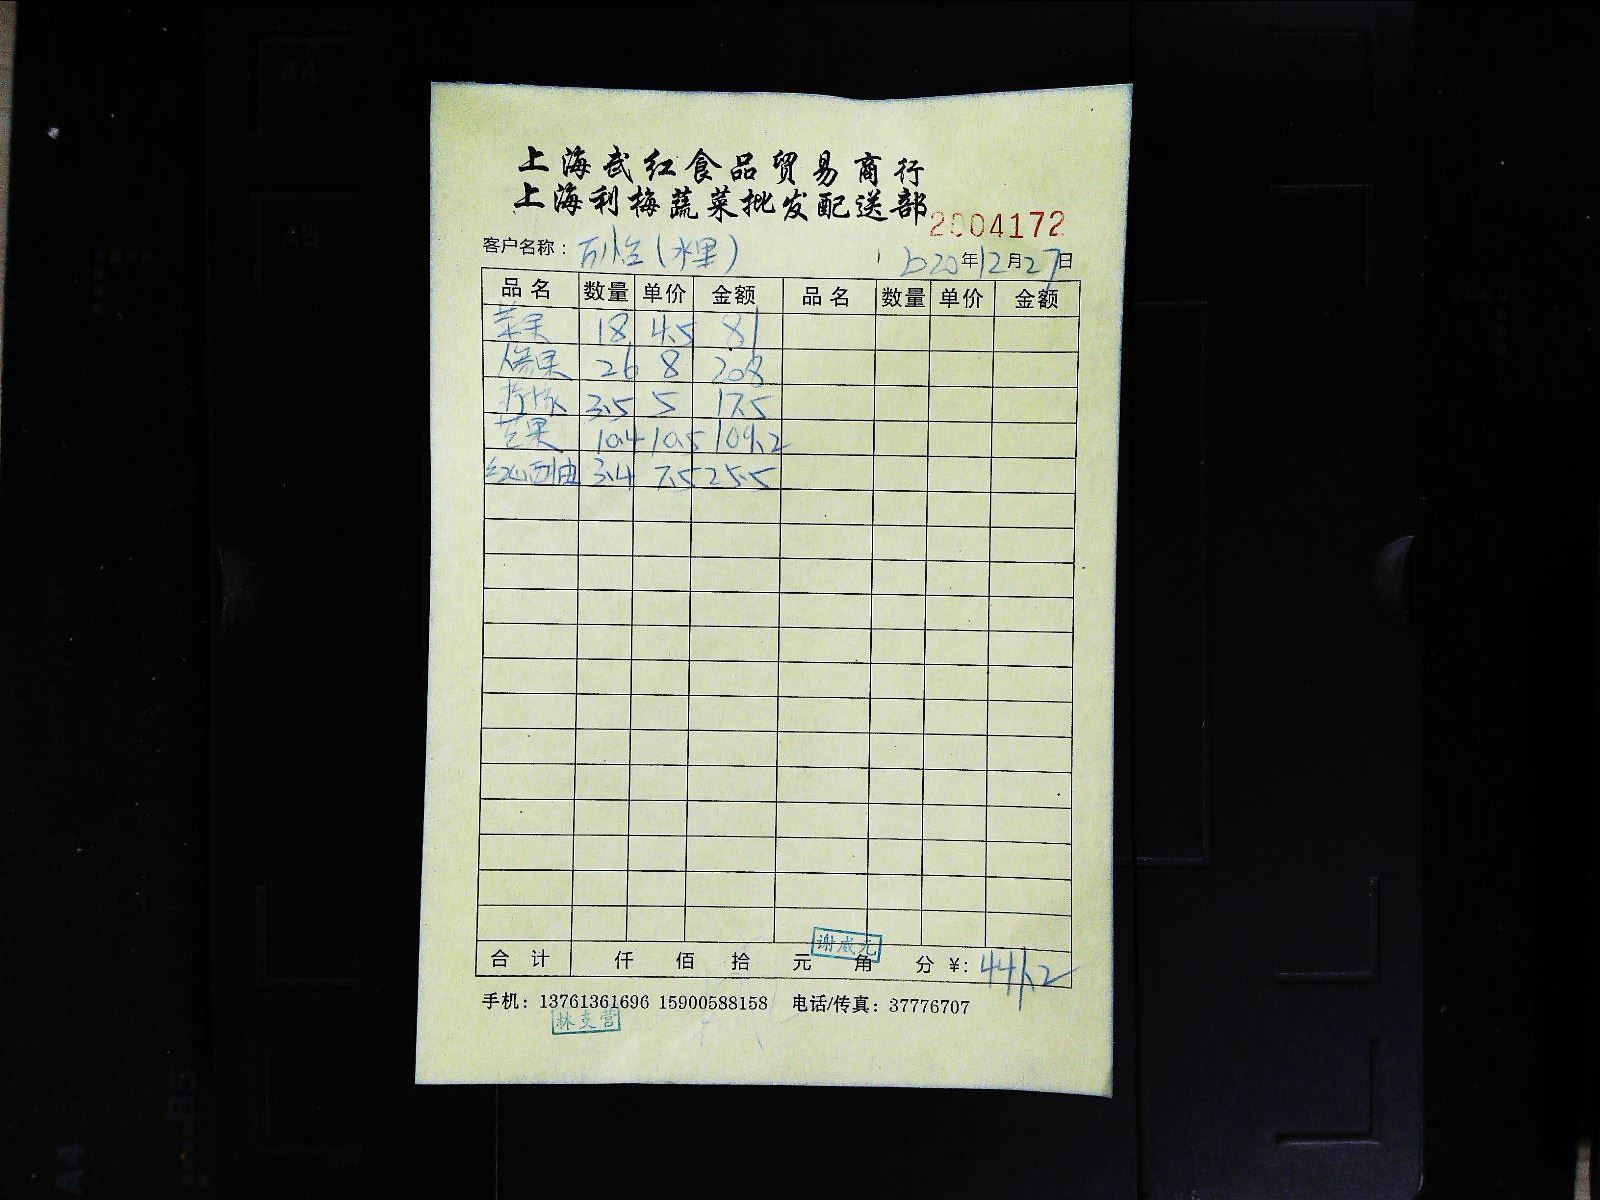 上海武红食品贸易商行
上海利梅蔬菜批发配送部
2004172
客户名称： (水果) 2020年12月27日
品名 数量 单价 金额 品名 数量 单价 金额
苹果 18 4.5 81
26 8 208
3.5 5 17.5
芒果 10.4 10.5 109.2
红心西柚 3.4 7.5 25.5
谢咸光
合计 仟 佰 拾 元 角 分 ¥: 441.2
手机：13761361696 15900588158 电话/传真：37776707
林支营